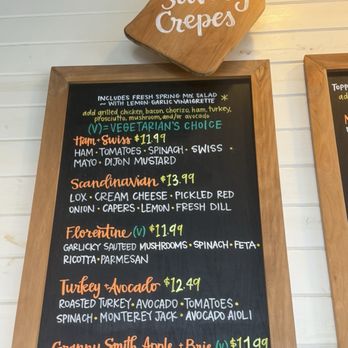 Savory
Crepes
INCLUDES FRESH SPRING MIX SALAD
~ WITH LEMON-GARLIC VINAIGRETTE *
add grilled chicken, bacon, chorizo, ham, turkey,
prosciutto, mushroom, and/or avocado
(V) = VEGETARIAN'S CHOICE
Ham + Swiss $11.99
HAM • TOMATOES • SPINACH • SWISS •
MAYO • DIJON MUSTARD
Scandinavian $13.99
LOX • CREAM CHEESE • PICKLED RED
ONION • CAPERS • LEMON • FRESH DILL
Florentine (V) $11.49
GARLICKY SAUTEED MUSHROOMS • SPINACH • FETA •
RICOTTA • PARMESAN
Turkey + Avocado $12.49
ROASTED TURKEY • AVOCADO • TOMATOES •
SPINACH • MONTEREY JACK • AVOCADO AIOLI
Granny Smith Apple + Brie (V) $11.99